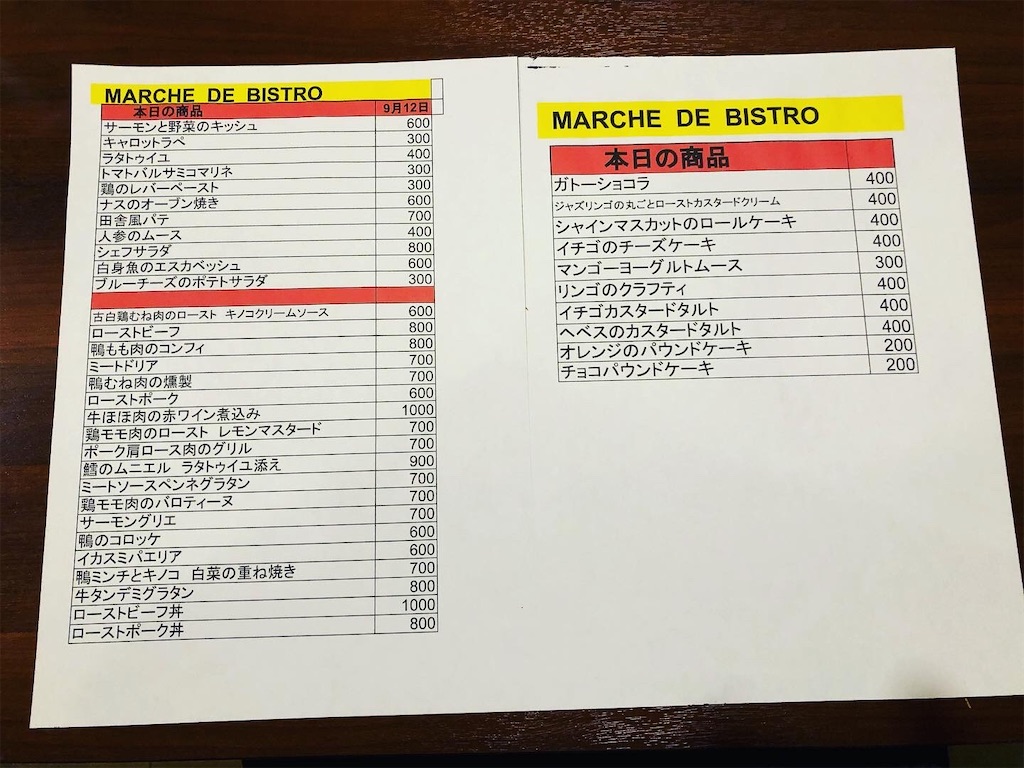 MARCHE DE BISTRO
本日の商品 9月12日
サーモンと野菜のキッシュ 600
キャロットラペ 300
ラタトゥイユ 400
トマトバルサミコマリネ 300
鶏のレバーペースト 300
ナスのオーブン焼き 600
田舎風パテ 700
人参のムース 400
シェフサラダ 800
白身魚のエスカベッシュ 600
ブルーチーズのポテトサラダ 300
古白鶏むね肉のロースト キノコクリームソース 600
ローストビーフ 800
鴨もも肉のコンフィ 800
ミートドリア 700
鴨むね肉の燻製 700
ローストポーク 600
牛ほほ肉の赤ワイン煮込み 1000
鶏モモ肉のロースト レモンマスタード 700
ポーク肩ロース肉のグリル 700
鱈のムニエル ラタトゥイユ添え 900
ミートソースペンネグラタン 700
鶏モモ肉のバロティーヌ 700
サーモングリエ 700
鴨のコロッケ 600
イカスミパエリア 600
鴨ミンチとキノコ 白菜の重ね焼き 700
牛タンデミグラタン 800
ローストビーフ丼 1000
ローストポーク丼 800
MARCHE DE BISTRO
本日の商品
ガトーショコラ 400
ジャズリンゴの丸ごとローストカスタードクリーム 400
シャインマスカットのロールケーキ 400
イチゴのチーズケーキ 400
マンゴーヨーグルトムース 300
リンゴのクラフティ 400
イチゴカスタードタルト 400
ヘベスのカスタードタルト 400
オレンジのパウンドケーキ 200
チョコパウンドケーキ 200